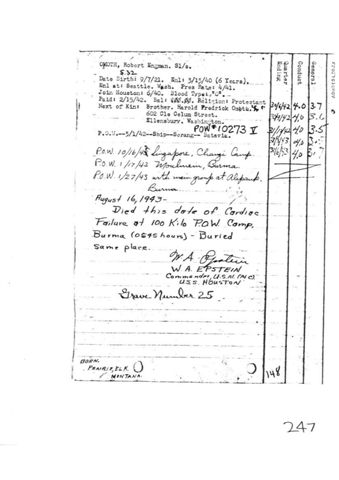 Robert Kngman. S1/c.
5.22
Date Birth: 9/7/21. Enl: 3/13/40 (6 Years).
Enl at: Seattle. Wash. Pres Rate: 4/41.
Join Houston: 6/40. Blood Type: "O".
Paid: 2/15/42. Bal: Religion: Protestant
Next of Kin: Brother. Harold Fredrick
602 Ole Oelum Street.
Ellensburg, Washington.
POW# 10273 V
P.O.W.--3/1/42--Ship--Serang--Batavia.
P.O.W. 10/16/42 Singapore, Changi Camp.
P.O.W. 1/17/43 Moulmein, Burma
P.O.W. 1/27/43 with main group at
Burma
August 16, 1943-
Died this date of Cardiac
Failure at 100 Kilo P.O.W. Camp,
Burma (0545 hours) - Buried
same place.
W A Epstein
W. A. EPSTEIN
Commander, U.S.N. (M.C.)
U.S.S. HOUSTON
Grave Number 25.
BORN.
PRAIRIE, ELK
MONTANA.
Quarter Ending
Conduct
General
4.0 3.7
4.0 3.6
4.0 3.5
4.0
148
247